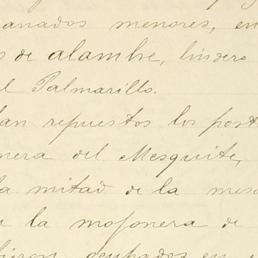 anados menores, en
s de alambre, lindero
el Palmarillo.
an repuestos los post
nera del Mesquite,
la mitad de la mes
a la mojonera de
ocupados en